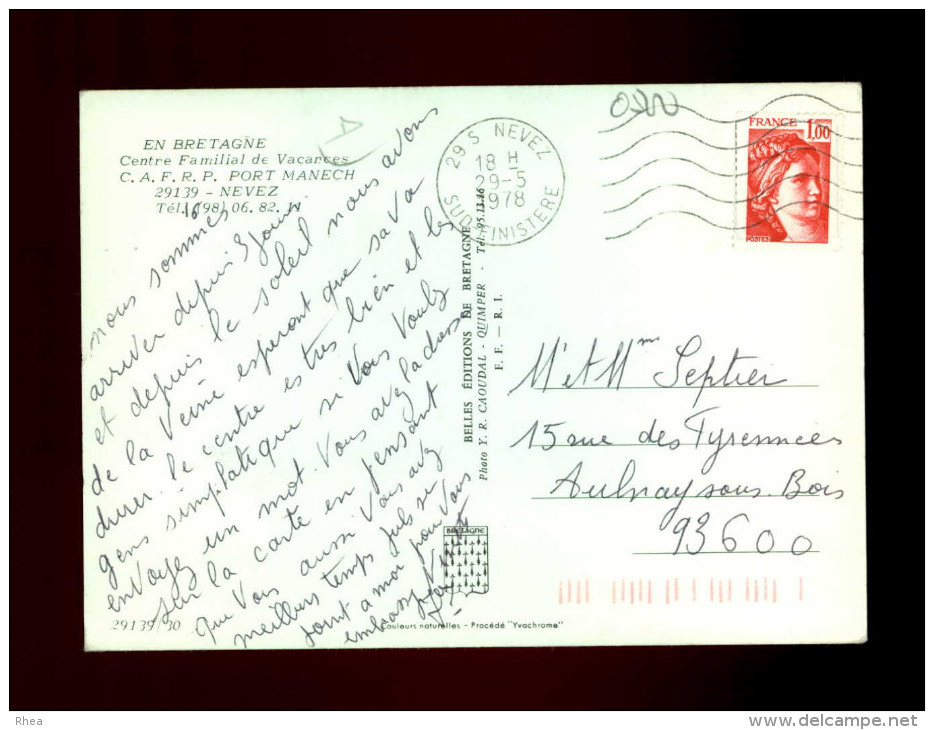 EN BRETAGNE
Centre Familial de Vacances
C. A. F. R. P. PORT MANECH
29139 - NEVEZ
Tél. (98) 06. 82. 11
nous sommes
arriver depuis 3 jours
et depuis le soleil nous avons
de la Veine esperont que sa va
durer. le centre es tres bien et les
gens simpatique si Vous Voulez
enVoyez un mot. Vous avez l'adresse
sur la carte en pensant
que Vous aussi Vous avez
meilleurs temps
embrasse
29139/30
29 S NEVEZ
18 H
29-5
1978
SUD FINISTERE
FRANCE 1,00
POSTES
BELLES ÉDITIONS DE BRETAGNE
Photo Y. R. CAOUDAL - QUIMPER - Tél. 95.13.16
F. F. — R. I.
BRETAGNE
Couleurs naturelles - Procédé "Yvachrome"
Mr et Mme Septier
15 rue des Pyrennées
Aulnay sous Bois
93600
Rhea
www.delcampe.net